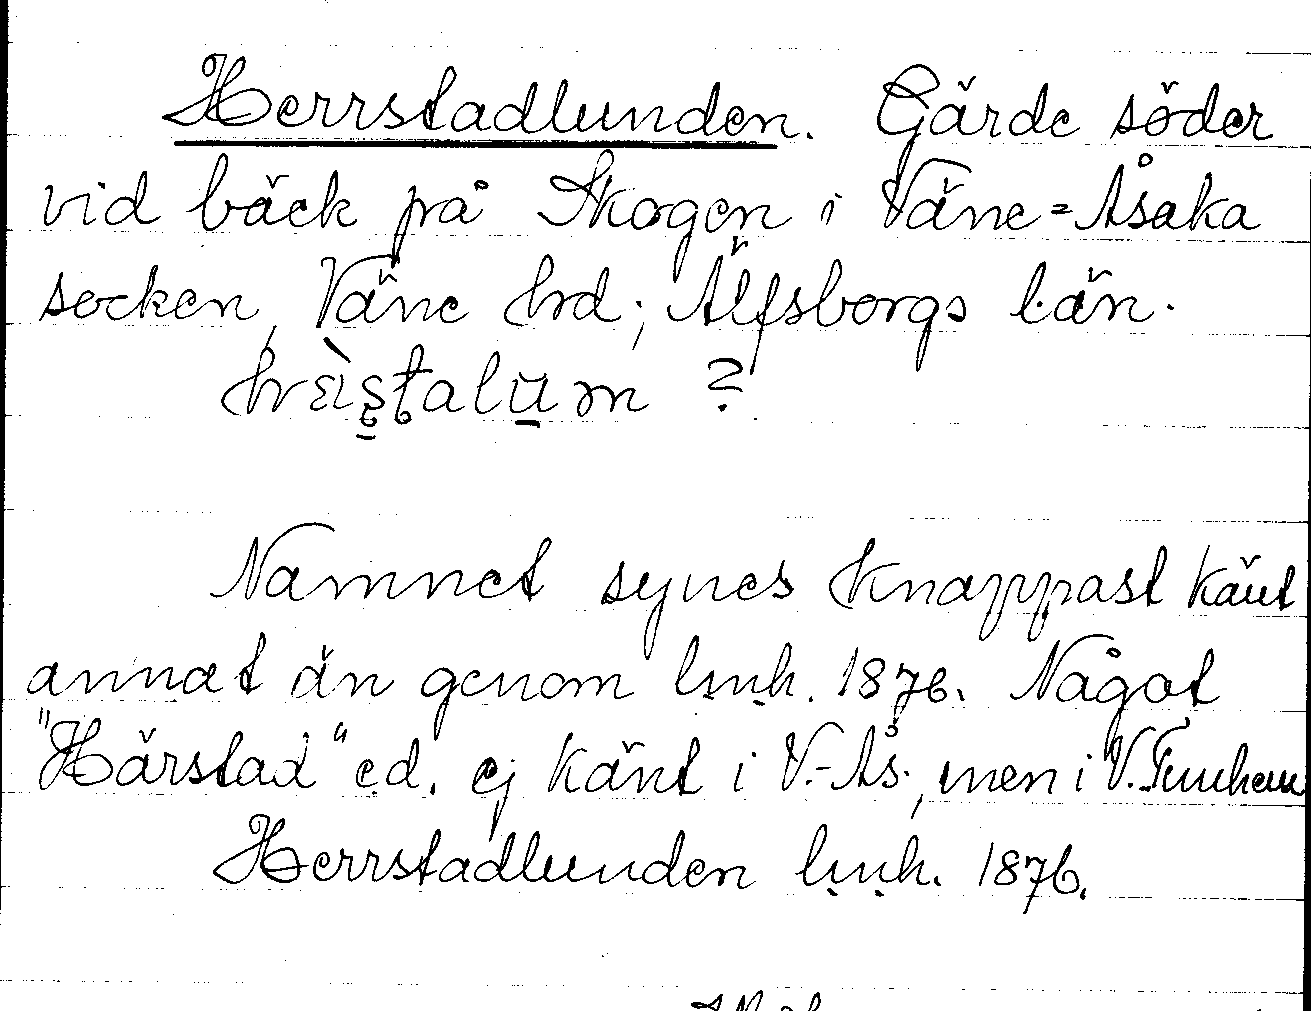 Herrstadlunden. Gärde söder
vid bäck på Skogen i Väne=Åsaka
socken, Väne hrd; Älfsborgs län.
?
Namnet synes knappast känt
annat än genom lmh. 1876. Något
"Härstad" ed. ej känt i V.-Ås., men i V.Tunhem
Herrstadlunden lmh. 1876.